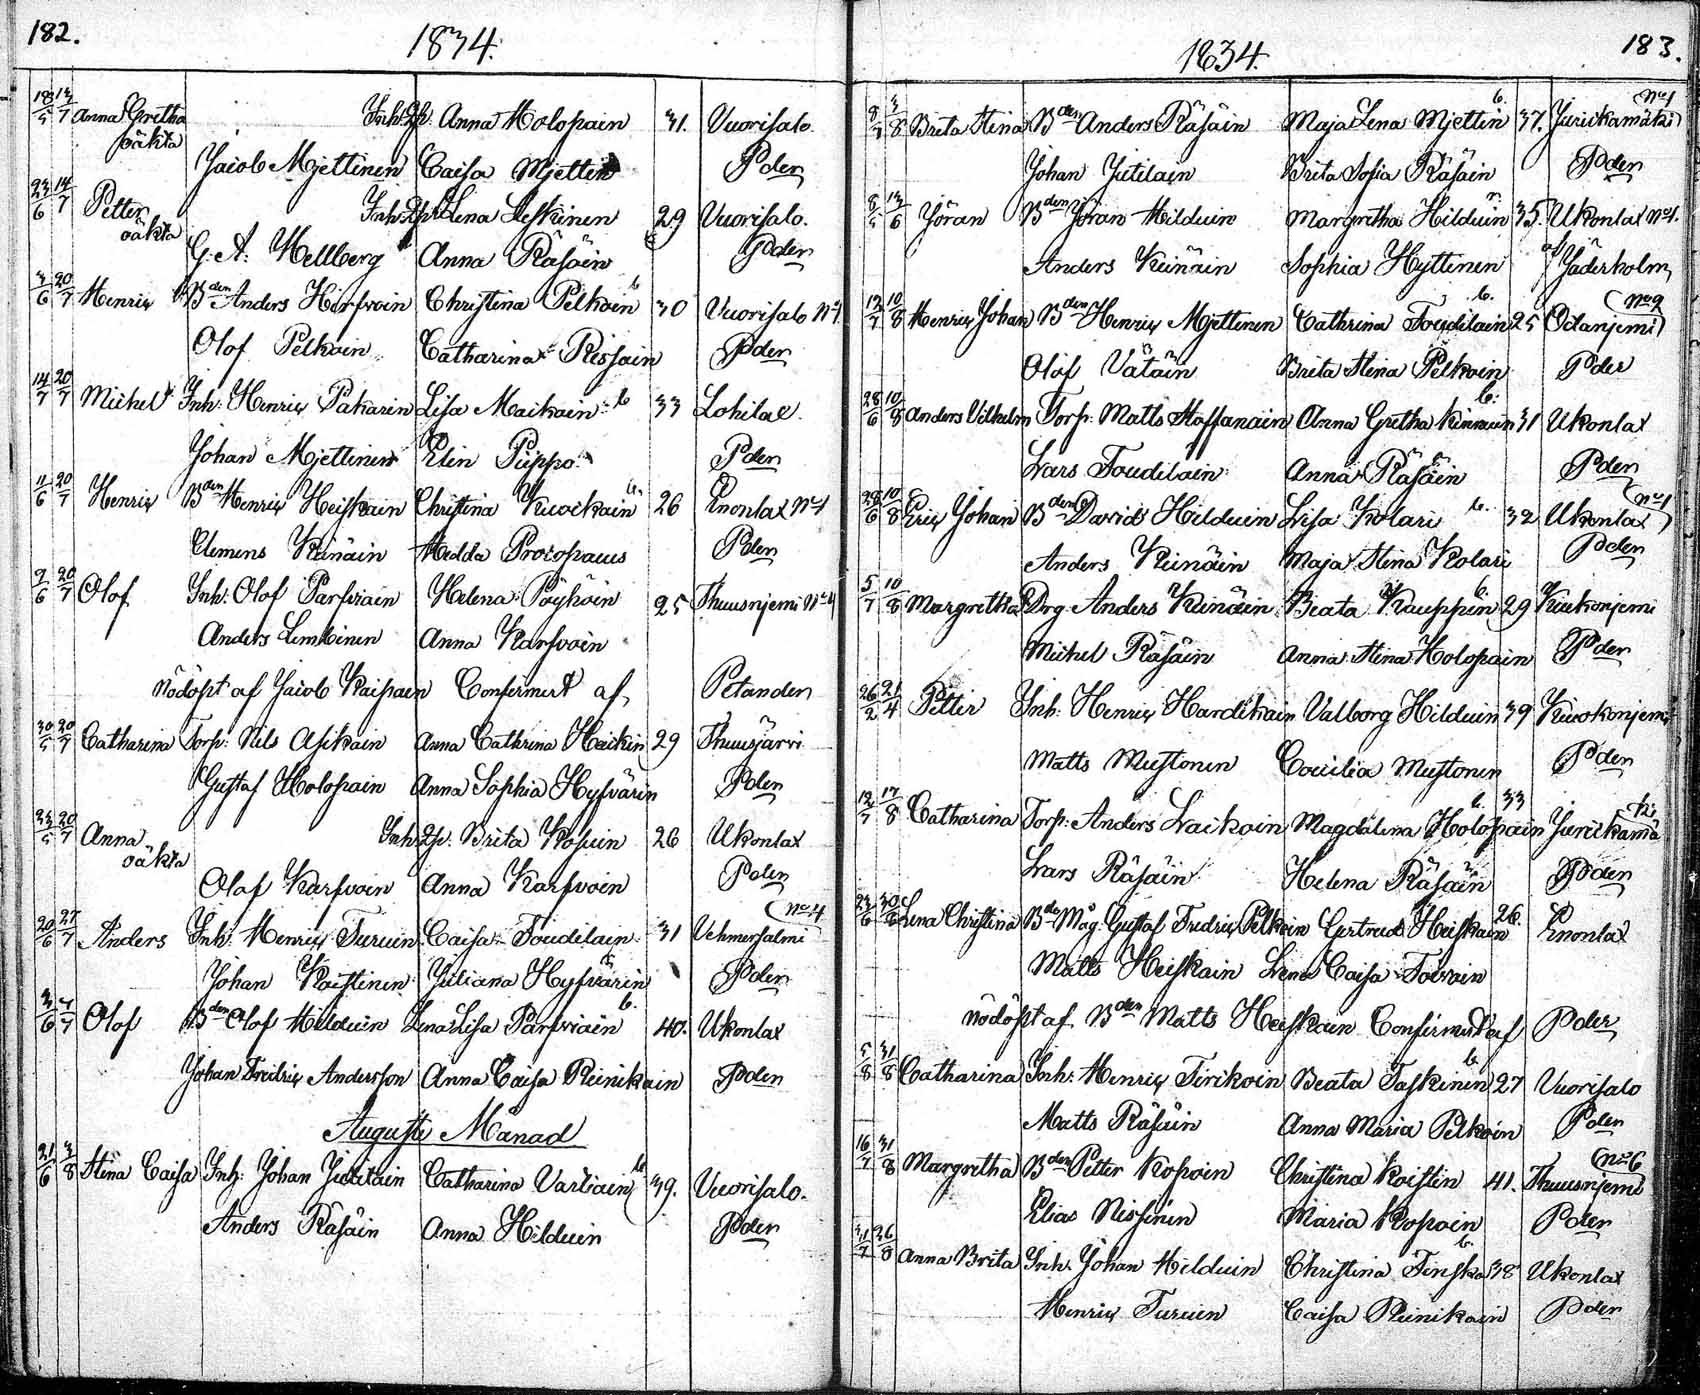 182.
1834.
18/5 13/7 Anna Gretha Inh: Anna Holopain 31. Vuorisalo.
oäkta
Jacob Mjettinen Caisa Mjettin Pden
23/6 14/7 Petter Lena Leskinen 29 Vuorisalo.
oäkta
G. A. Hellberg Anna Räsäin Pden
3/6 20/7 Henrix Bden Anders Hirfvoin Christina Pelkoin 30 Vuorisalo No 1
Olof Pelkoin Catharina Pden
14/7 20/7 Michel Inh: Henrix Pakarin Lisa Maikain 33 Lohilax.
Johan Mjettinen Elin Puppo Pden
11/6 20/7 Henrix Bden Henrix Heiskain Christina Kuoikain 26 Enonlax No 1
Clemens Hedda Procopaeus Pden
9/6 20/7 Olof Inh: Olof Parfviain Helena Pöyhöin 25 Thuusnjemi No 4
Anders Lembinen Anna Karfvoin
nödöpt af Jacob Kaipain Confirmert af Petander
30/5 20/7 Catharina Torp: Nils Asikain Anna Cathrina Heikin 29 Thuusjärvi
Gustaf Holopain Anna Sophia Hyfvärin Pden
20/7 Anna Inh: Brita Kopoin 26 Ukonlax
oäkta
Olof Karfvoin Anna Karfvoin Pden
20/6 27/7 Anders Inh: Henrix Turuin Caisa Toudilain 31 Vehmersalmi No 4
Johan Koistinen Juliana Hyfvärin Pden
Olof Bden Olof Hilduin Lena Lisa Parfviain 40. Ukonlax
Johan Fredrix Andersson Anna Caisa Reinikain Pden
Augusti Månad
21/6 3/8 Stina Caisa Inh: Johan Jutilain Catharina Vartiain 39. Vuorisalo.
Anders Räsäin Anna Hilduin Pden
183.
1834.
3/8 Brita Stina Bden Anders Räsäin Maja Lena Mjettin 37. Jurickamäki No 1
Johan Jutilain Brita Sofia Räsäin Pden
Jöran Bden Jöran Hilduin Margretha Hilduin 35. Ukonlax No 1.
Anders Keinäin Sophia Hyttinen af Jäderholm
12/7 10/8 Henrix Johan Bden Henrix Mjettinen Cathrina Toudilain 25 Odanjemi No 2
Olof Vätäin Brita Stina Pelkoin Pden
28/6 10/8 Anders Vilhelm Torp: Matts Staffanain Anna Gretha 31 Ukonlax
Lars Toudilain Anna Räsäin Pden
28/6 10/8 Erix Johan Bden David Hilduin Lisa Kolari 32 Ukonlax No 1
Anders Keinäin Maja Stina Kolari Pden
5/7 10/8 Margretha Drg Anders Keinäin Beata Kauppin 29
Michel Räsäin Anna Stina Holopain Pden
26/2 21/4 Petter Inh: Henrix Hardikain Valborg Hilduin 39
Matts Mustonen Coecilia Mustonen Pden
12/7 17/8 Catharina Torp: Anders Laikoin Magdalena Holopain 33 Jurickamä
Lars Räsäin Helena Räsäin Pden
23/6 30/8 Lena Christina Bde Mag Gustaf Fredrix Pelkoin Gertrud Heiskain 26. Enonlax
Matts Heiskain Lena Caisa Toivain
nödöpt af Bden Matts Heiskain Confirmert af Pden
5/8 31/8 Catharina Inh: Henrix Tirikoin Beata Taskinen 27 Vuorisalo
Matts Räsäin Anna Maria Pelkoin Pden
16/7 31/8 Margretha Bden Petter Kopoin Christina Koistin 41. Thuusnjemi No 6
Elias Nissinen Maria Kopoin Pden
31/7 Anna Brita Inh: Johan Hilduin Christina Tenska 38 Ukonlax
Henrix Turuen Caisa Reinikain Pden